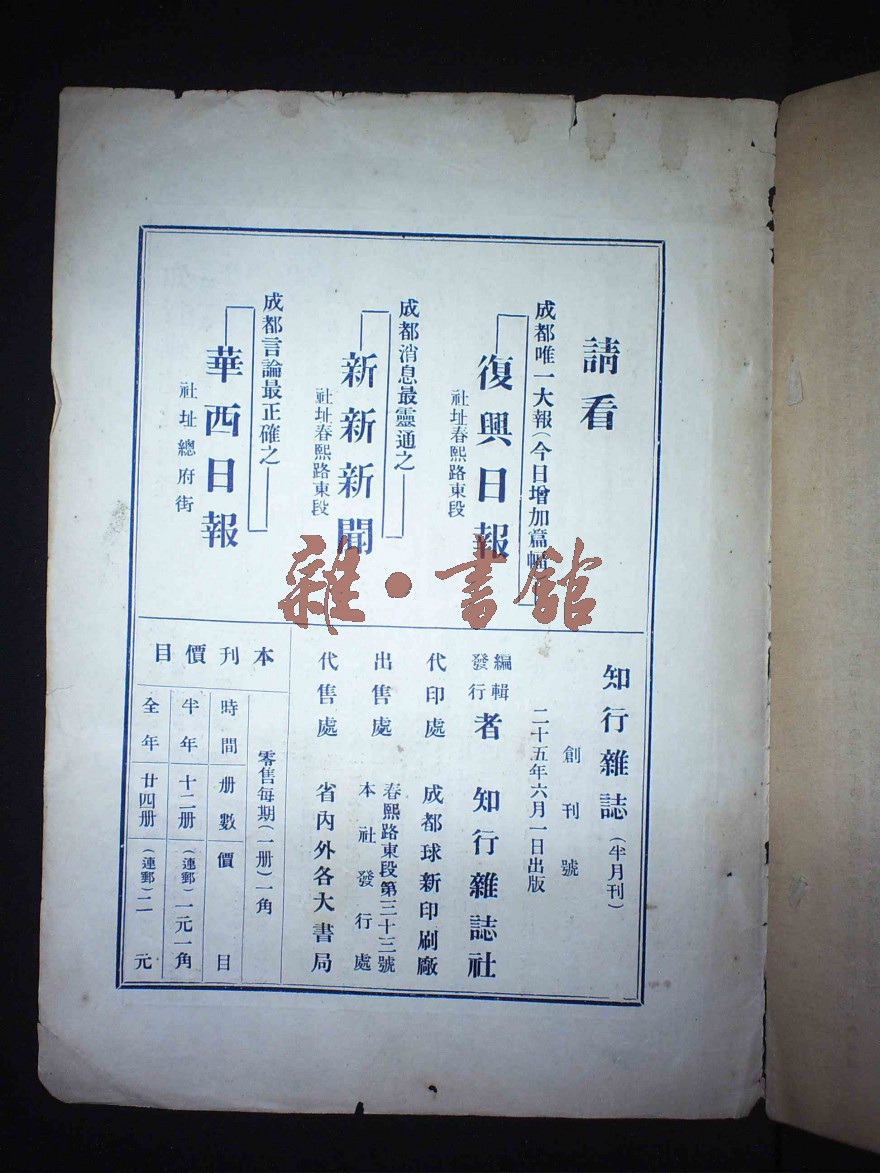 請看
成都唯一大報(今日增加篇幅)
復興日報
社址春熙路東段
成都消息最靈通之
新新新聞
社址春熙路東段
成都言論最正確之
華西日報
社址總府街
雜·書館
知行雜誌(半月刊)
創刊號
二十五年六月一日出版
編輯
發行
者 知行雜誌社
代印處 成都球新印刷廠
出售處 春熙路東段第三十三號
本社發行處
代售處 省內外各大書局
本刊價目
零售每期(一册)一角
時間 册數 價目
半年 十二册 (連郵)一元一角
全年 廿四册 (連郵)二元